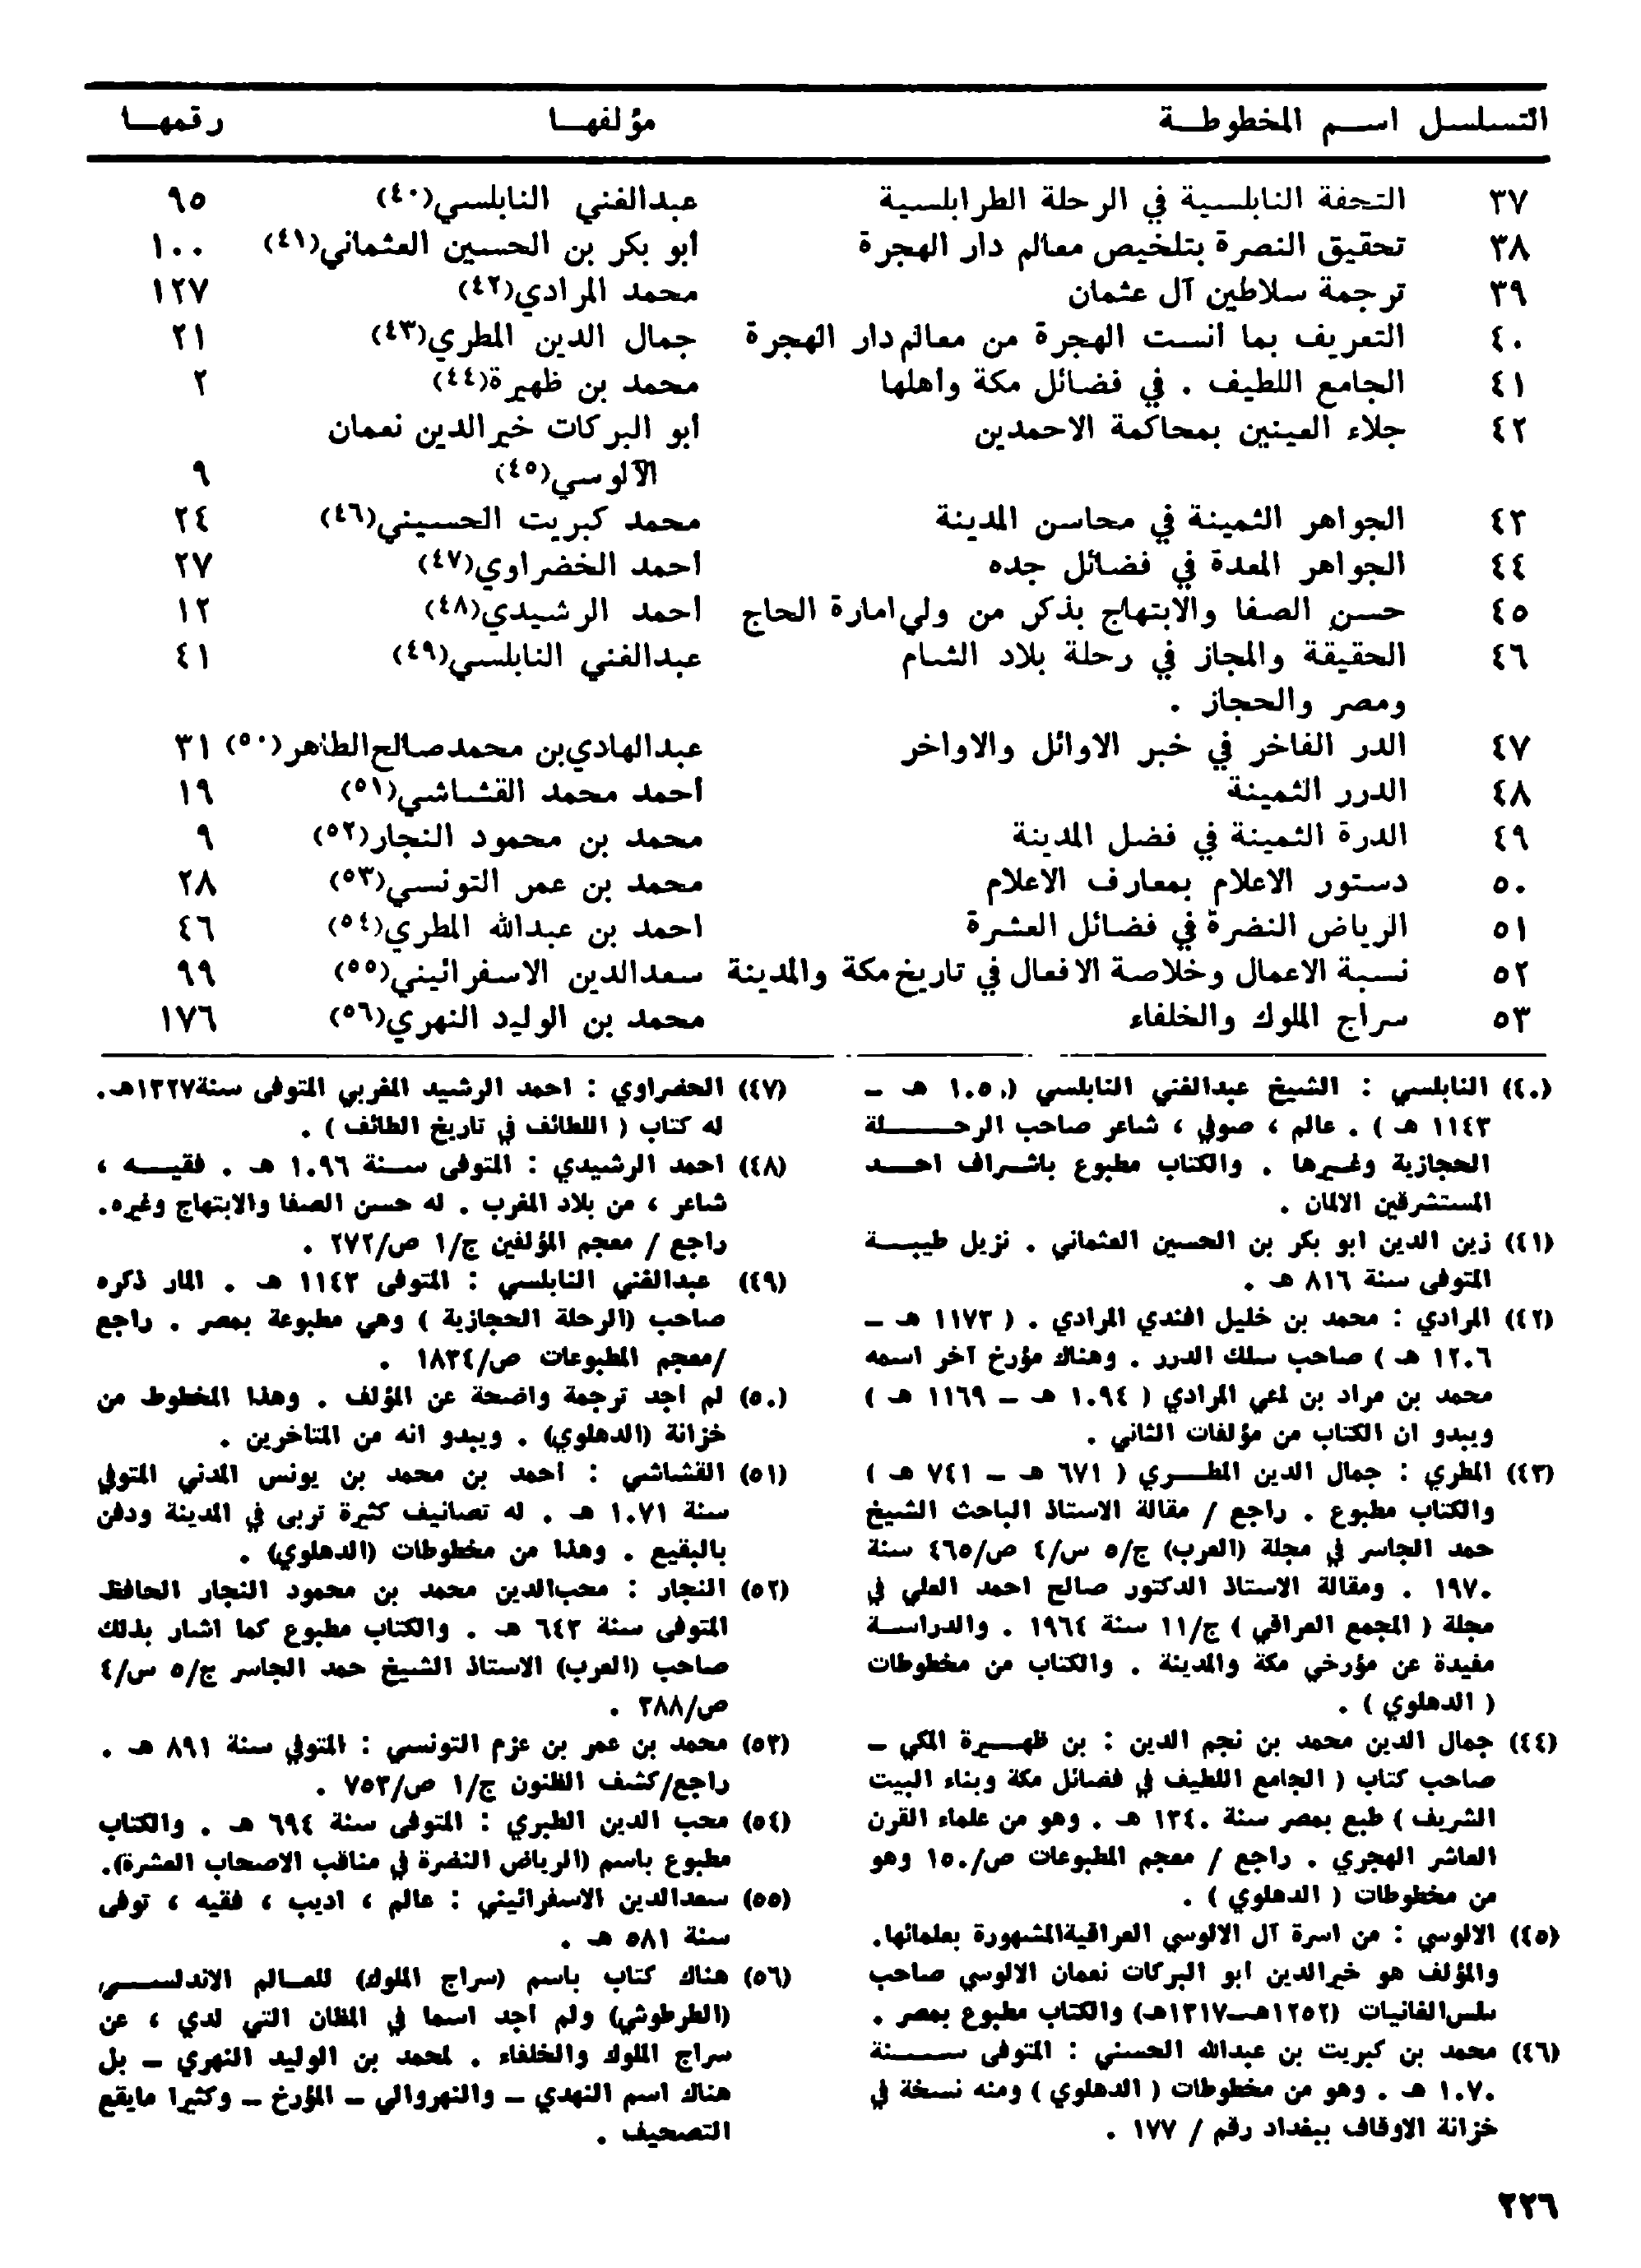 التسلسل اسم المخطوطة مؤلفها رقمها
٣٧ التحفة النابلسية في الرحلة الطرابلسية عبدالغني النابلسي(٤٠) ٩٥
٣٨ تحقيق النصرة بتلخيص معالم دار الهجرة أبو بكر بن الحسين العثماني(٤١) ١٠٠
٣٩ ترجمة سلاطين آل عثمان محمد المرادي(٤٢) ١٢٧
٤٠ التعريف بما انست الهجرة من معالم دار الهجرة جمال الدين المطري(٤٣) ٢١
٤١ الجامع اللطيف . في فضائل مكة وأهلها محمد بن ظهيرة(٤٤) ٢
٤٢ جلاء العينين بمحاكمة الاحمدين أبو البركات خيرالدين نعمان
الآلوسي(٤٥) ٩
٤٣ الجواهر الثمينة في محاسن المدينة محمد كبريت الحسيني(٤٦) ٢٤
٤٤ الجواهر المعدة في فضائل جده احمد الخضراوي(٤٧) ٢٧
٤٥ حسن الصفا والابتهاج بذكر من ولي امارة الحاج احمد الرشيدي(٤٨) ١٢
٤٦ الحقيقة والمجاز في رحلة بلاد الشام عبدالغني النابلسي(٤٩) ٤١
ومصر والحجاز .
٤٧ الدر الفاخر في خبر الاوائل والاواخر عبدالهادي بن محمد صالح الطاهر(٥٠) ٣١
٤٨ الدرر الثمينة أحمد محمد القشاشي(٥١) ١٩
٤٩ الدرة الثمينة في فضل المدينة محمد بن محمود النجار(٥٢) ٩
٥٠ دستور الاعلام بمعارف الاعلام محمد بن عمر التونسي(٥٣) ٢٨
٥١ الرياض النضرة في فضائل العشرة احمد بن عبدالله المطري(٥٤) ٤٦
٥٢ نسبة الاعمال وخلاصة الافعال في تاريخ مكة والمدينة سعدالدين الاسفرائيني(٥٥) ٩٩
٥٣ سراج الملوك والخلفاء محمد بن الوليد النهري(٥٦) ١٧٦
(٤٠) النابلسي : الشيخ عبدالغني النابلسي (١٠٥٠ هـ –
١١٤٣ هـ ) . عالم ، صوفي ، شاعر صاحب الرحلة
الحجازية وغيرها . والكتاب مطبوع باشراف احد
المستشرقين الالمان .
(٤١) زين الدين ابو بكر بن الحسين العثماني . نزيل طيبة
المتوفى سنة ٨١٦ هـ .
(٤٢) المرادي : محمد بن خليل افندي المرادي . ( ١١٧٣ هـ –
١٢٠٦ هـ ) صاحب سلك الدرر . وهناك مؤرخ آخر اسمه
محمد بن مراد بن لمعي المرادي ( ١٠٩٤ هـ – ١١٦٩ هـ )
ويبدو ان الكتاب من مؤلفات الثاني .
(٤٣) المطري : جمال الدين المطري ( ٦٧١ هـ – ٧٤١ هـ )
والكتاب مطبوع . راجع / مقالة الاستاذ الباحث الشيخ
حمد الجاسر في مجلة (العرب) ج/٥ س/٤ ص/٤٦٥ سنة
١٩٧٠ . ومقالة الاستاذ الدكتور صالح احمد العلي في
مجلة ( المجمع العراقي ) ج/١١ سنة ١٩٦٤ . والدراسة
مفيدة عن مؤرخي مكة والمدينة . والكتاب من مخطوطات
( الدهلوي ) .
(٤٤) جمال الدين محمد بن نجم الدين : بن ظهيرة المكي –
صاحب كتاب ( الجامع اللطيف في فضائل مكة وبناء البيت
الشريف ) طبع بمصر سنة ١٣٤٠ هـ . وهو من علماء القرن
العاشر الهجري . راجع / معجم المطبوعات ص/١٥٠ وهو
من مخطوطات ( الدهلوي ) .
(٤٥) الالوسي : من اسرة آل الالوسي العراقية المشهورة بعلمائها.
والمؤلف هو خيرالدين ابو البركات نعمان الالوسي صاحب
سلس الغانيات (١٢٥٢هـ–١٣١٧هـ) والكتاب مطبوع بمصر .
(٤٦) محمد بن كبريت بن عبدالله الحسني : المتوفى سنة
١٠٧٠ هـ . وهو من مخطوطات ( الدهلوي ) ومنه نسخة في
خزانة الاوقاف ببغداد رقم / ١٧٧ .
(٤٧) الحضراوي : احمد الرشيد المغربي المتوفى سنة ١٣٢٧هـ.
له كتاب ( اللطائف في تاريخ الطائف ) .
(٤٨) احمد الرشيدي : المتوفى سنة ١٠٩٦ هـ . فقيه ،
شاعر ، من بلاد المغرب . له حسن الصفا والابتهاج وغيره.
راجع / معجم المؤلفين ج/١ ص/٢٧٢ .
(٤٩) عبدالغني النابلسي : المتوفى ١١٤٣ هـ . المار ذكره
صاحب (الرحلة الحجازية ) وهي مطبوعة بمصر . راجع
/معجم المطبوعات ص/١٨٣٤ .
(٥٠) لم اجد ترجمة واضحة عن المؤلف . وهذا المخطوط من
خزانة (الدهلوي) . ويبدو انه من المتاخرين .
(٥١) القشاشي : أحمد بن محمد بن يونس المدني المتوفي
سنة ١٠٧١ هـ . له تصانيف كثيرة تربى في المدينة ودفن
بالبقيع . وهذا من مخطوطات (الدهلوي) .
(٥٢) النجار : محب‌الدين محمد بن محمود النجار الحافظ
المتوفى سنة ٦٤٣ هـ . والكتاب مطبوع كما اشار بذلك
صاحب (العرب) الاستاذ الشيخ حمد الجاسر ج/٥ س/٤
ص/٣٨٨ .
(٥٣) محمد بن عمر بن عزم التونسي : المتوفي سنة ٨٩١ هـ .
راجع/كشف الظنون ج/١ ص/٧٥٣ .
(٥٤) محب الدين الطبري : المتوفى سنة ٦٩٤ هـ . والكتاب
مطبوع باسم (الرياض النضرة في مناقب الاصحاب العشرة).
(٥٥) سعدالدين الاسفرائيني : عالم ، اديب ، فقيه ، توفى
سنة ٥٨١ هـ .
(٥٦) هناك كتاب باسم (سراج الملوك) للعالم الاندلسي
(الطرطوشي) ولم اجد اسما في المظان التي لدي ، عن
سراج الملوك والخلفاء . لمحمد بن الوليد النهري – بل
هناك اسم النهدي – والنهروالي – المؤرخ – وكثيرا مايقع
التصحيف .
٢٢٦